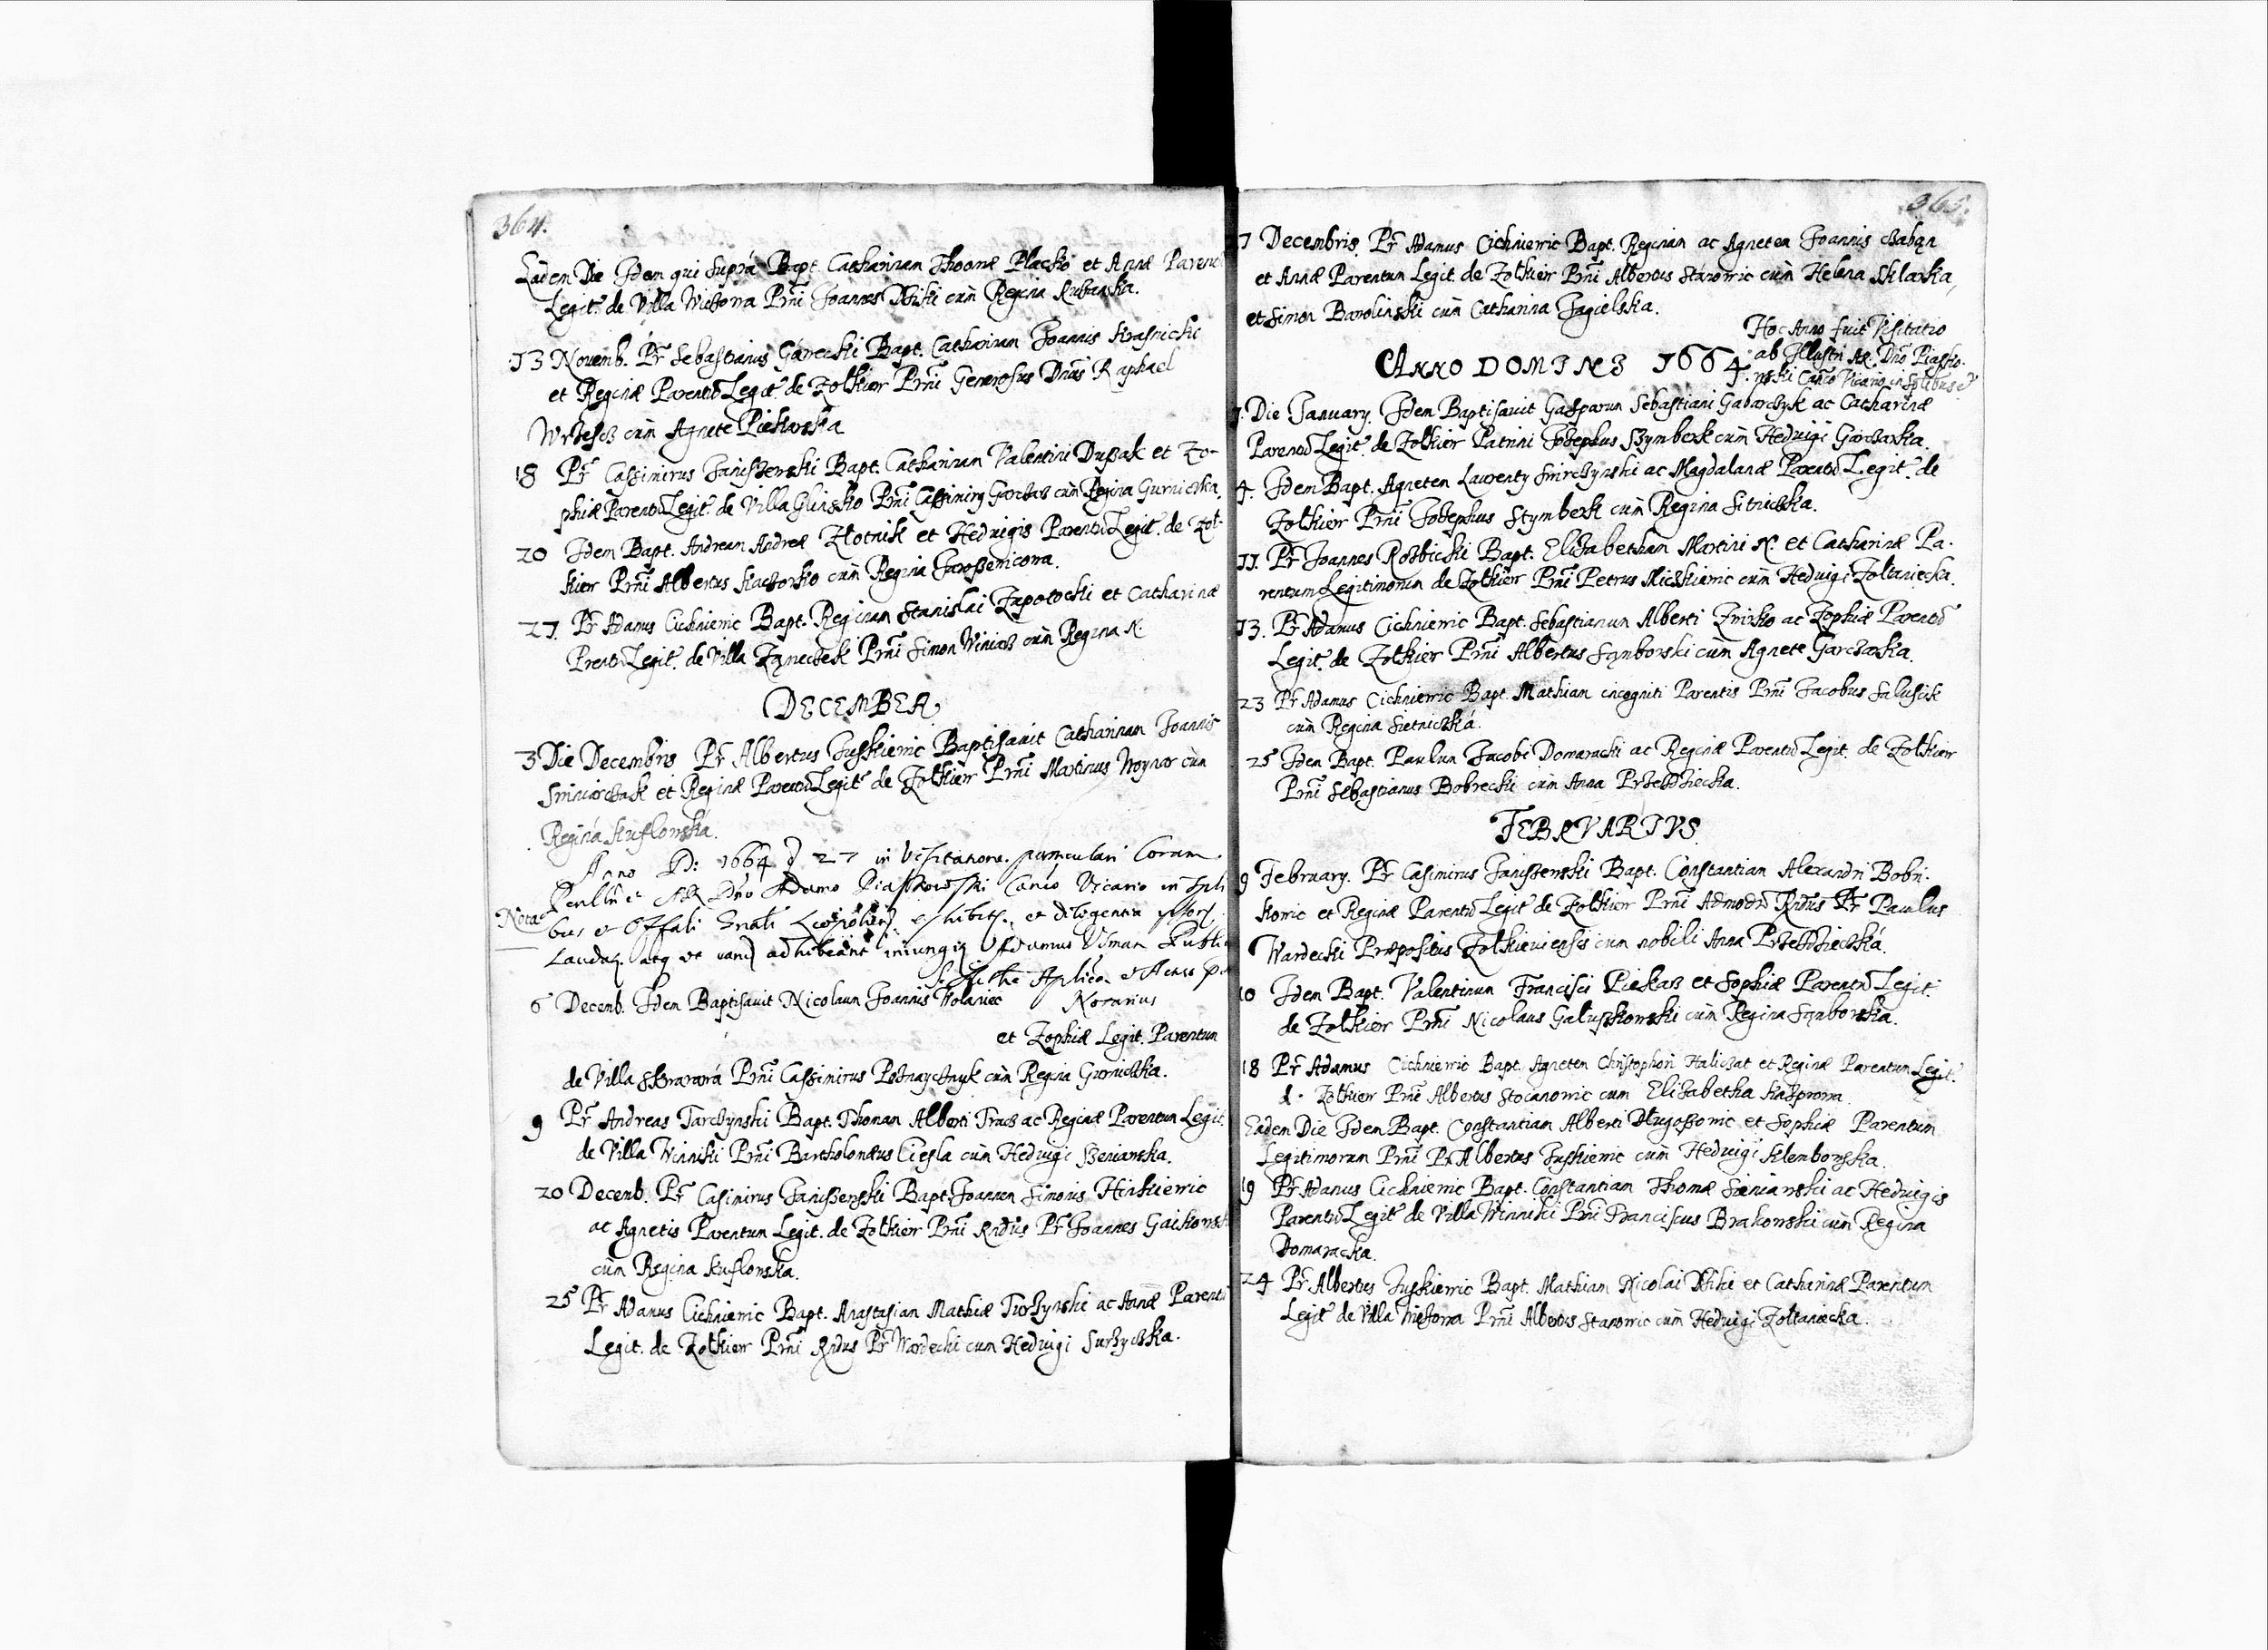 364.
Eadem Die Idem qui supra Bapt. Catharinam Thomæ Placko et Annæ Parent
Legit. de Villa Wiazowa Prni Joannes cum Regina Rubaszka.
13 Novemb. Pr Sebastianus Garecki Bapt. Catharinam Joannis Krasnicki
et Reginæ Parentũ Legit. de Zolkiew Prni Generosus Dnus Raphael
cum Agnete Piekarska
18 Pr Cassimirus Janiszewski Bapt. Catharinam Valentini Duszak et Zo-
phiæ Parentũ Legit. de Villa Glinsko Prni Cassimirꝰ Garczarz cum Regina Gurniczka.
20 Idem Bapt. Andream Andreæ Zlotnik et Hedvigis Parentũ Legit. de Zol-
kiew Prni Albertus Kaczorko cum Regina Jaroszewicowa.
27. Pr Adamus Cichniewic Bapt. Reginam Stanislai Zapotocki et Catharinæ
Prentũ Legit. de Villa Prni Simon Winiarz cum Regina N.
DECEMBER
3 Die Decembris Pr Albertus Juskiewic Baptisavit Catharinam Joannis
et Reginæ Parentũ Legit de Zolkiew Prni Martinus Woynar cum
Regina Kuslowska.
Anno D: 1664 d 27 in Visitatione particulari Coram
Perillri et ADR Dno Adamo Piaskowski Canco Vicario in Spli
Nota bus et Offali Gnali Leopolien exhibit. et diligentia
Laudaꝫ. atq ut adhibeant iniungiꝫ Adamus Publi
Aplica et
Notarius
6 Decemb. Idem Baptisavit Nicolaum Joannis Wolaniec
et Zophiæ Legit. Parentum
de Villa Skwarawa Prni Cassimirus cum Regina Gurniczka.
9 Pr Andreas Tarczynski Bapt. Thomam Alberti Tracz ac Reginæ Parentum Legit.
de Villa Winniki Prni Bartholomæus Ciesla cum Hedvigi Szeniawska.
20 Decemb. Pr Casimirus Janiszewski Bapt. Joannem Simonis Hinkiewic
ac Agnetis Parentum Legit. de Zolkiew Prni Rndus Pr Joannes Gaikowsk
cum Regina Kuslowska.
25 Pr Adamus Cichniewic Bapt. Anastasiam Mathiæ Turzynski ac Annæ Parenti
Legit. de Zolkiew Prni Rndus Pr Wardecki cum Hedvigi Surzyczka.
365.
7 Decembris. Pr Adamus Cichniewic Bapt. Reginam ac Agnetem Joannis Czaban
et Annæ Parentum Legit. de Zolkiew Prni Albertus Starowic cum Helena Sklarka,
et Simon Barolinski cum Catharina Jagielska.
Hoc Anno fuit Visitatio
ab Illustri Ar. Dno Piasko-
wski Canco Vicario in Splibus et
ANNO DOMINI 1664.
1. Die January. Idem Baptisavit Gasparum Sebastiani Gabarczyk ac Catharinæ
Parentũ Legit. de Zolkiew Patrini Josephus Szymberk cum Hedvigi Garczarka.
4. Idem Bapt. Agneten Laurenty Swirczynski ac Magdalenæ Parentũ Legit. de
Zolkiew Prni Josephus Szymberk cum Regina Sitniczka.
11. Pr Joannes Rozbicki Bapt. Elizabetham Martini N. et Catharinæ Pa-
rentum Legitimorum de Zolkiew Prni Petrus Mickiewic cum Hedvigi Zoltaniecka.
13. Pr Adamus Cichniewic Bapt. Sebastianum Alberti ac Zophiæ Parentũ
Legit. de Zolkiew Prni Albertus Samborski cum Agnete Garczarka.
23 Pr Adamus Cichniewic Bapt. Mathiam incogniti Parentis Prni Jacobus Salusik
cum Regina Sietniczka.
25 Idem Bapt. Paulum Jacobi Domaracki ac Reginæ Parentũ Legit. de Zolkiew
Prni Sebastianus Bobrecki cum Anna Przeździecka.
FEBRVARIVS.
9 February. Pr Casimirus Janiszewski Bapt. Constantiam Alexandri Bobri-
kowic et Reginæ Parentũ Legit de Zolkiew Prni Admodũ Rndus Pr Paulus
Wardecki Præpositus Zolkieviensis cum nobili Anna Przeździeczka.
10 Idem Bapt. Valentinum Francisci Piekarz et Sophiæ Parentũ Legit.
de Zolkiew Prni Nicolaus Galuszkowski cum Regina Samborska.
18 Pr Adamus Cichniewic Bapt. Agneten Christophori Haliczat et Reginæ Parentum Legit.
d. Zolkiew Prni Albertus Stocanowic cum Elizabetha Kasprowa.
Eadem Die Idem Bapt. Constantiam Alberti Dlugoszowic et Sophiæ Parentum
Legitimorum Prni Pr Albertus Juskiewic cum Hedvigi Klembowska.
19 Pr Adamus Cichniewic Bapt. Constantiam Thomæ Sieniawski ac Hedvigis
Parentũ Legit de Villa Winniki Prni Franciscus Brakowski cum Regina
Domaracka.
24 Pr Albertus Juskiewic Bapt. Mathiam Nicolai et Catharinæ Parentum
Legit de Villa Wiazowa Prni Albertus Stanowic cum Hedvigi Zoltaniecka.